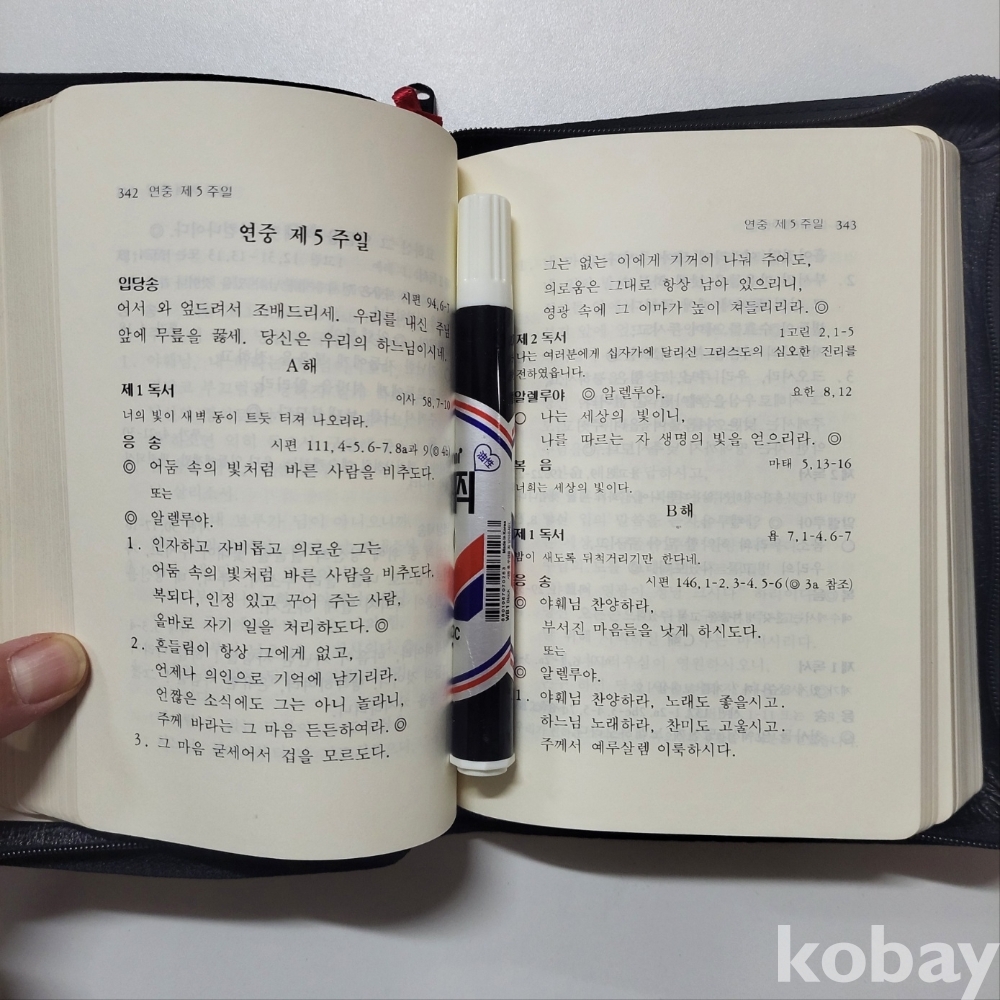 342 연중 제5주일
연중 제5주일
입당송
시편 94,6-7
어서 와 엎드려서 조배드리세. 우리를 내신 주님
앞에 무릎을 꿇세. 당신은 우리의 하느님이시네.
A해
제1독서
이사 58,7-10
너의 빛이 새벽 동이 트듯 터져 나오리라.
응 송 시편 111,4-5.6-7.8a과 9(◎ 4a
◎ 어둠 속의 빛처럼 바른 사람을 비추도다.
또는
◎ 알렐루야.
1. 인자하고 자비롭고 의로운 그는
어둠 속의 빛처럼 바른 사람을 비추도다.
복되다, 인정 있고 꾸어 주는 사람,
올바로 자기 일을 처리하도다. ◎
2. 흔들림이 항상 그에게 없고,
언제나 의인으로 기억에 남기리라.
언짢은 소식에도 그는 아니 놀라니,
주께 바라는 그 마음 든든하여라. ◎
3. 그 마음 굳세어서 겁을 모르도다.
油性
연중 제5주일 343
그는 없는 이에게 기꺼이 나눠 주어도,
의로움은 그대로 항상 남아 있으리니,
영광 속에 그 이마가 높이 쳐들리리라. ◎
제2독서 1고린 2,1-5
나는 여러분에게 십자가에 달리신 그리스도의 심오한 진리를
전하였읍니다.
알렐루야 ◎ 알렐루야. 요한 8,12
○ 나는 세상의 빛이니,
나를 따르는 자 생명의 빛을 얻으리라. ◎
복 음 마태 5,13-16
너희는 세상의 빛이다.
B해
제1독서 욥 7,1-4.6-7
밤이 새도록 뒤척거리기만 한다네.
응 송 시편 146,1-2.3-4.5-6(◎ 3a 참조)
◎ 야훼님 찬양하라,
부서진 마음들을 낫게 하시도다.
또는
◎ 알렐루야.
1. 야훼님 찬양하라, 노래도 좋을시고.
하느님 노래하라, 찬미도 고울시고.
주께서 예루살렘 이룩하시다.
kobay